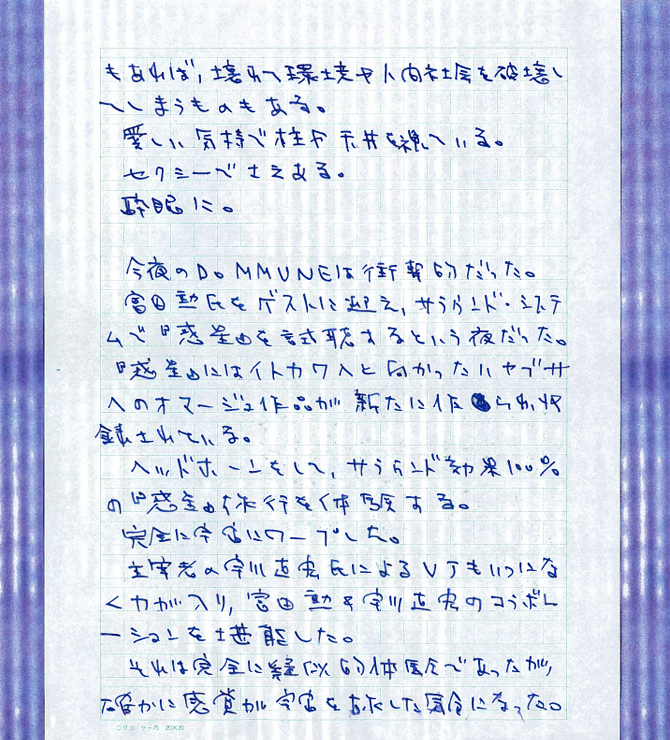 もあれば，壊れて環境や人内社会を破壊し
てしまうものもある。
愛しい気持で柱や天井を視ている。
セクシーでさえある。
酔眼に。
今夜のDOMMUNEは衝撃的だった。
冨田勲氏をゲストに迎え，サラウンド・システ
ムで『惑星』を試聴するという夜だった。
『惑星』にはイトカワへと向かったハヤブサ
へのオマージュ作品が新たに作られ収
録されている。
ヘッドホーンをして，サラウンド効果100%
の『惑星』旅行を体験する。
完全に宇宙にワープした。
主宰者の宇川直宏氏によるVJもいつにな
く力が入り，冨田勲&宇川直宏のコラボレ
ーションを堪能した。
それは完全に疑似的体験であったが，
確かに感覚が宇宙を旅した気分になった。
コクヨ ケ-75 20×20